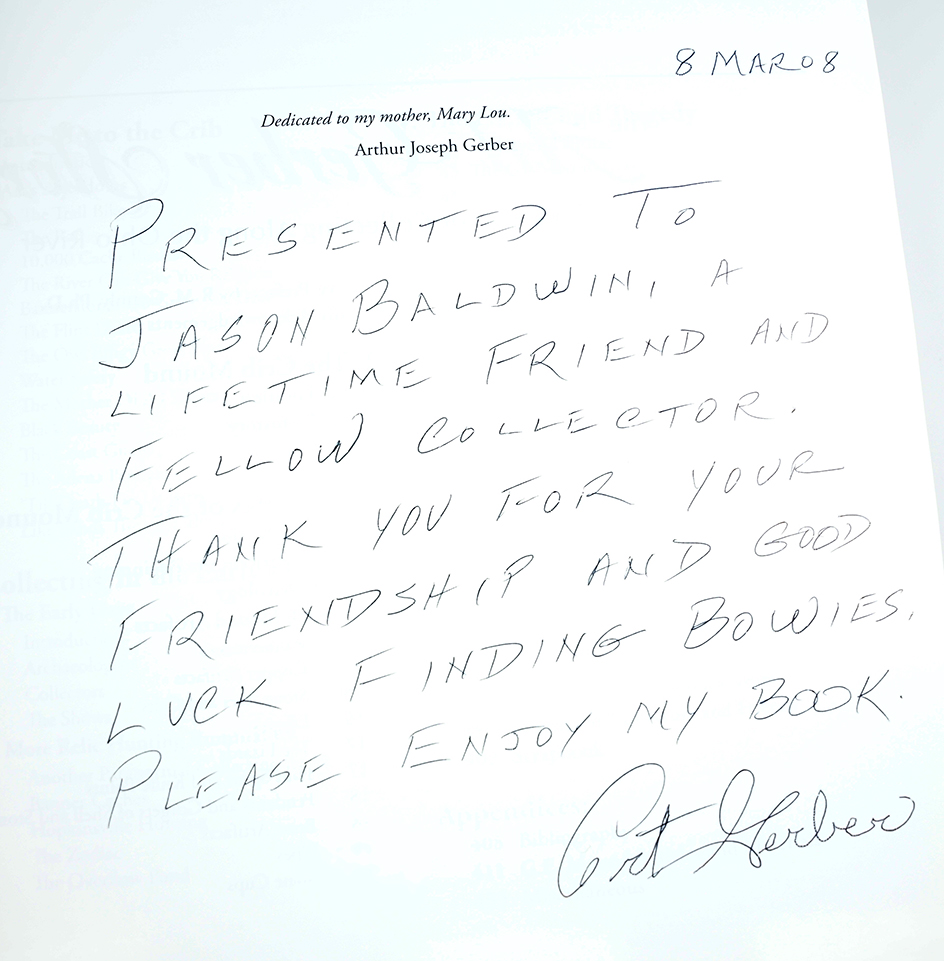 8 MAR 08
Dedicated to my mother, Mary Lou.
Arthur Joseph Gerber
PRESENTED TO
JASON BALDWIN, A
LIFETIME FRIEND AND
FELLOW COLLECTOR.
THANK YOU FOR YOUR
FRIENDSHIP AND GOOD
LUCK FINDING BOWIES.
PLEASE ENJOY MY BOOK.
Art Gerber